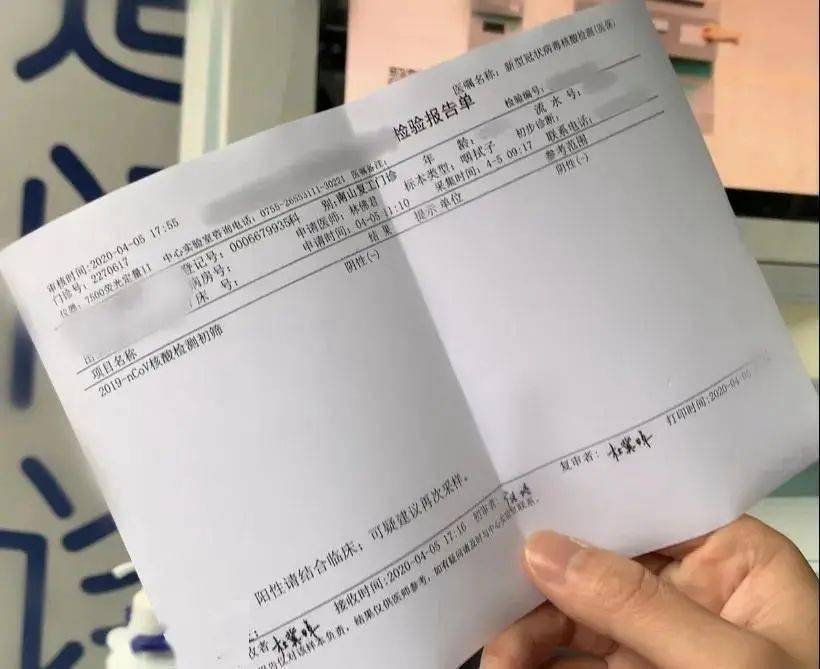 医嘱名称: 新型冠状病毒核酸检测(医保)
检验报告单
检验编号:
审核时间:2020-04-05 17:55 中心实验室咨询电话: 0755-26553111-30221 医嘱备注: 年 龄: 流 水 号:
门诊号: 2270617 登记号: 0006679935 科 别:南山复工门诊 标本类型: 咽拭子 初步诊断:
仪器: 7500荧光定量II 病房号: 申请医师: 林佛君 采集时间: 4-5 09:17 联系电话:
床 号: 申请时间: 04-05 11:10
项目名称 结 果 提示 单位 参考范围
2019-nCoV核酸检测初筛 阴性(-) 阴性(-)
阳性请结合临床; 可疑建议再次采样。
接收时间:2020-04-05 17:16 初审者: 复审者: 打印时间:2020-04-05
告仅对该样本负责, 结果仅供医师参考, 如有疑问请及时与中心实验室联系。